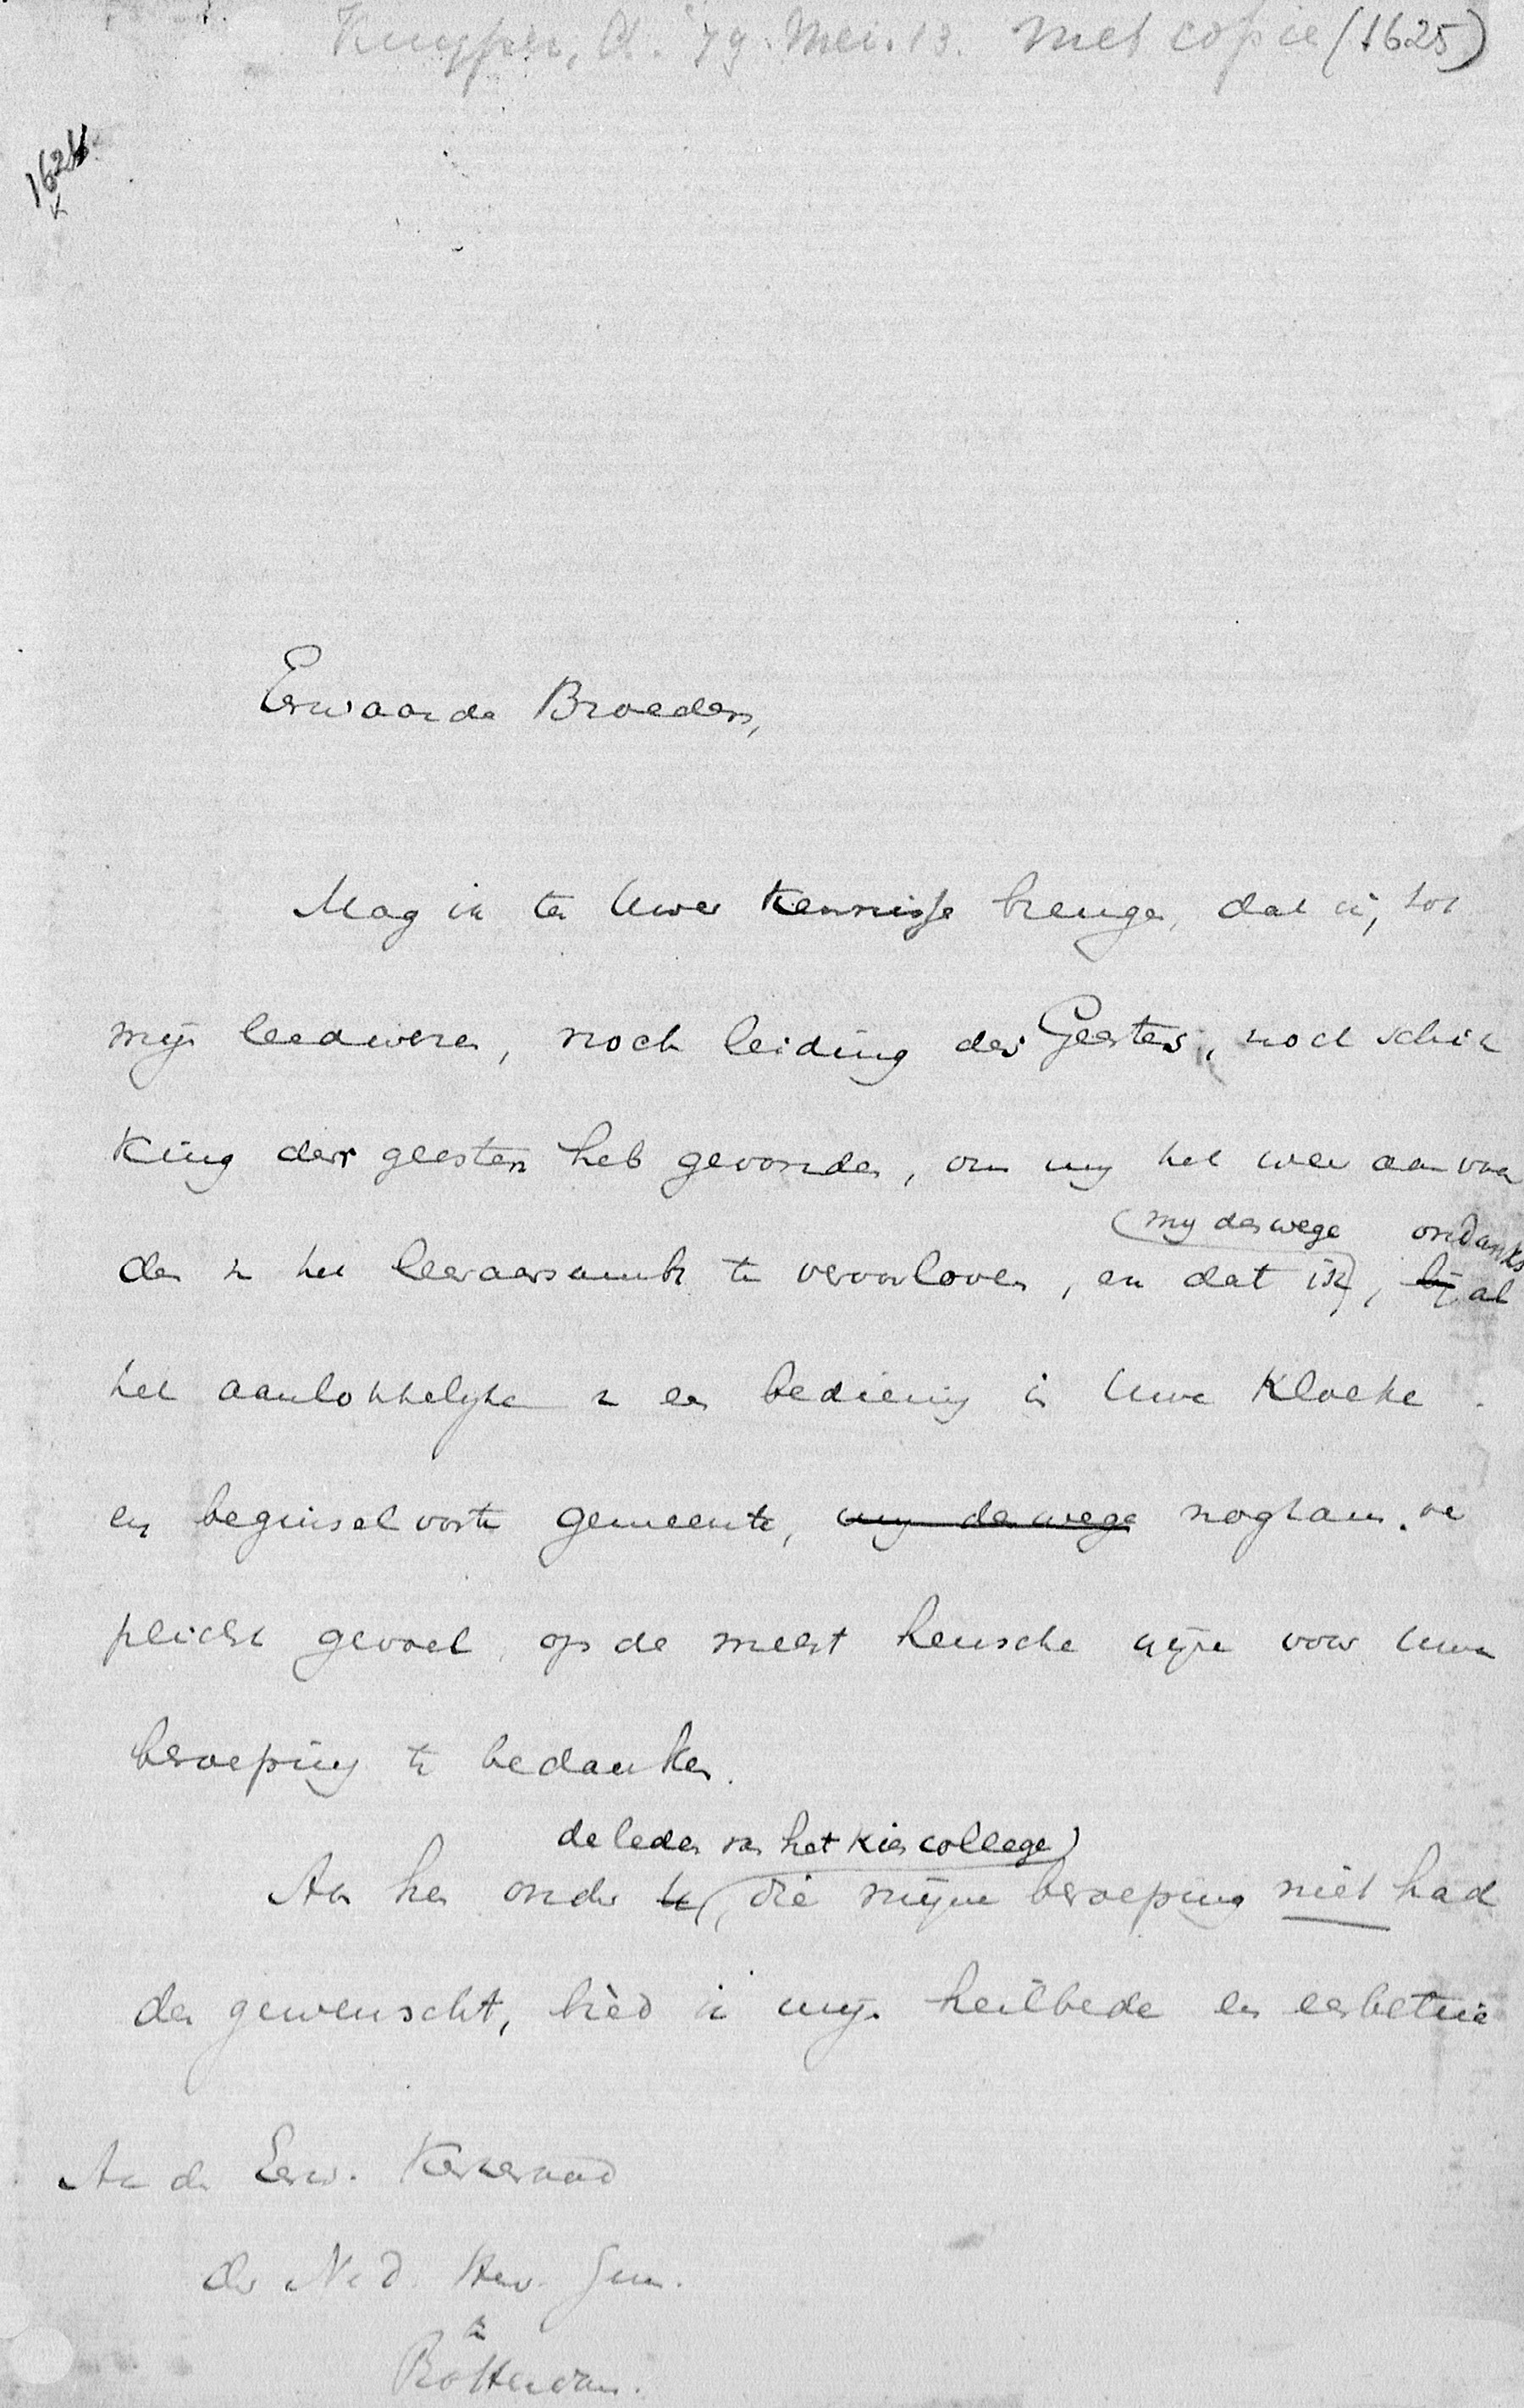 Kuyper, A. 79. Mei. 13. met copie (1625)
1624
Eerwaarde Broeders,
Mag ik ter Uwer kennisse brengen, dat ik, tot
mijn leedwezen, noch leiding des Geestes, noch schik
king der geesten heb gevonden, om mij het weer aanvaar
(mij deswege ondanks
den van het leeraarsambt te veroorloven, en dat ik), bij al
het aanlokkelijke van een bediening in Uwe kloeke
en beginselvaste gemeente, mij deswege nogtans ver
plicht gevoel, op de meest heusche wijze voor Uwe
beroeping te bedanken.
de leden van het kiescollege)
Aan hen onder U (, die mijne beroeping niet had
den gewenscht, bied ik mijn heilbede en eerbetui
Aan den Eerw. Kerkeraad
der Ned. Herv. Gem.
te
Rotterdam.